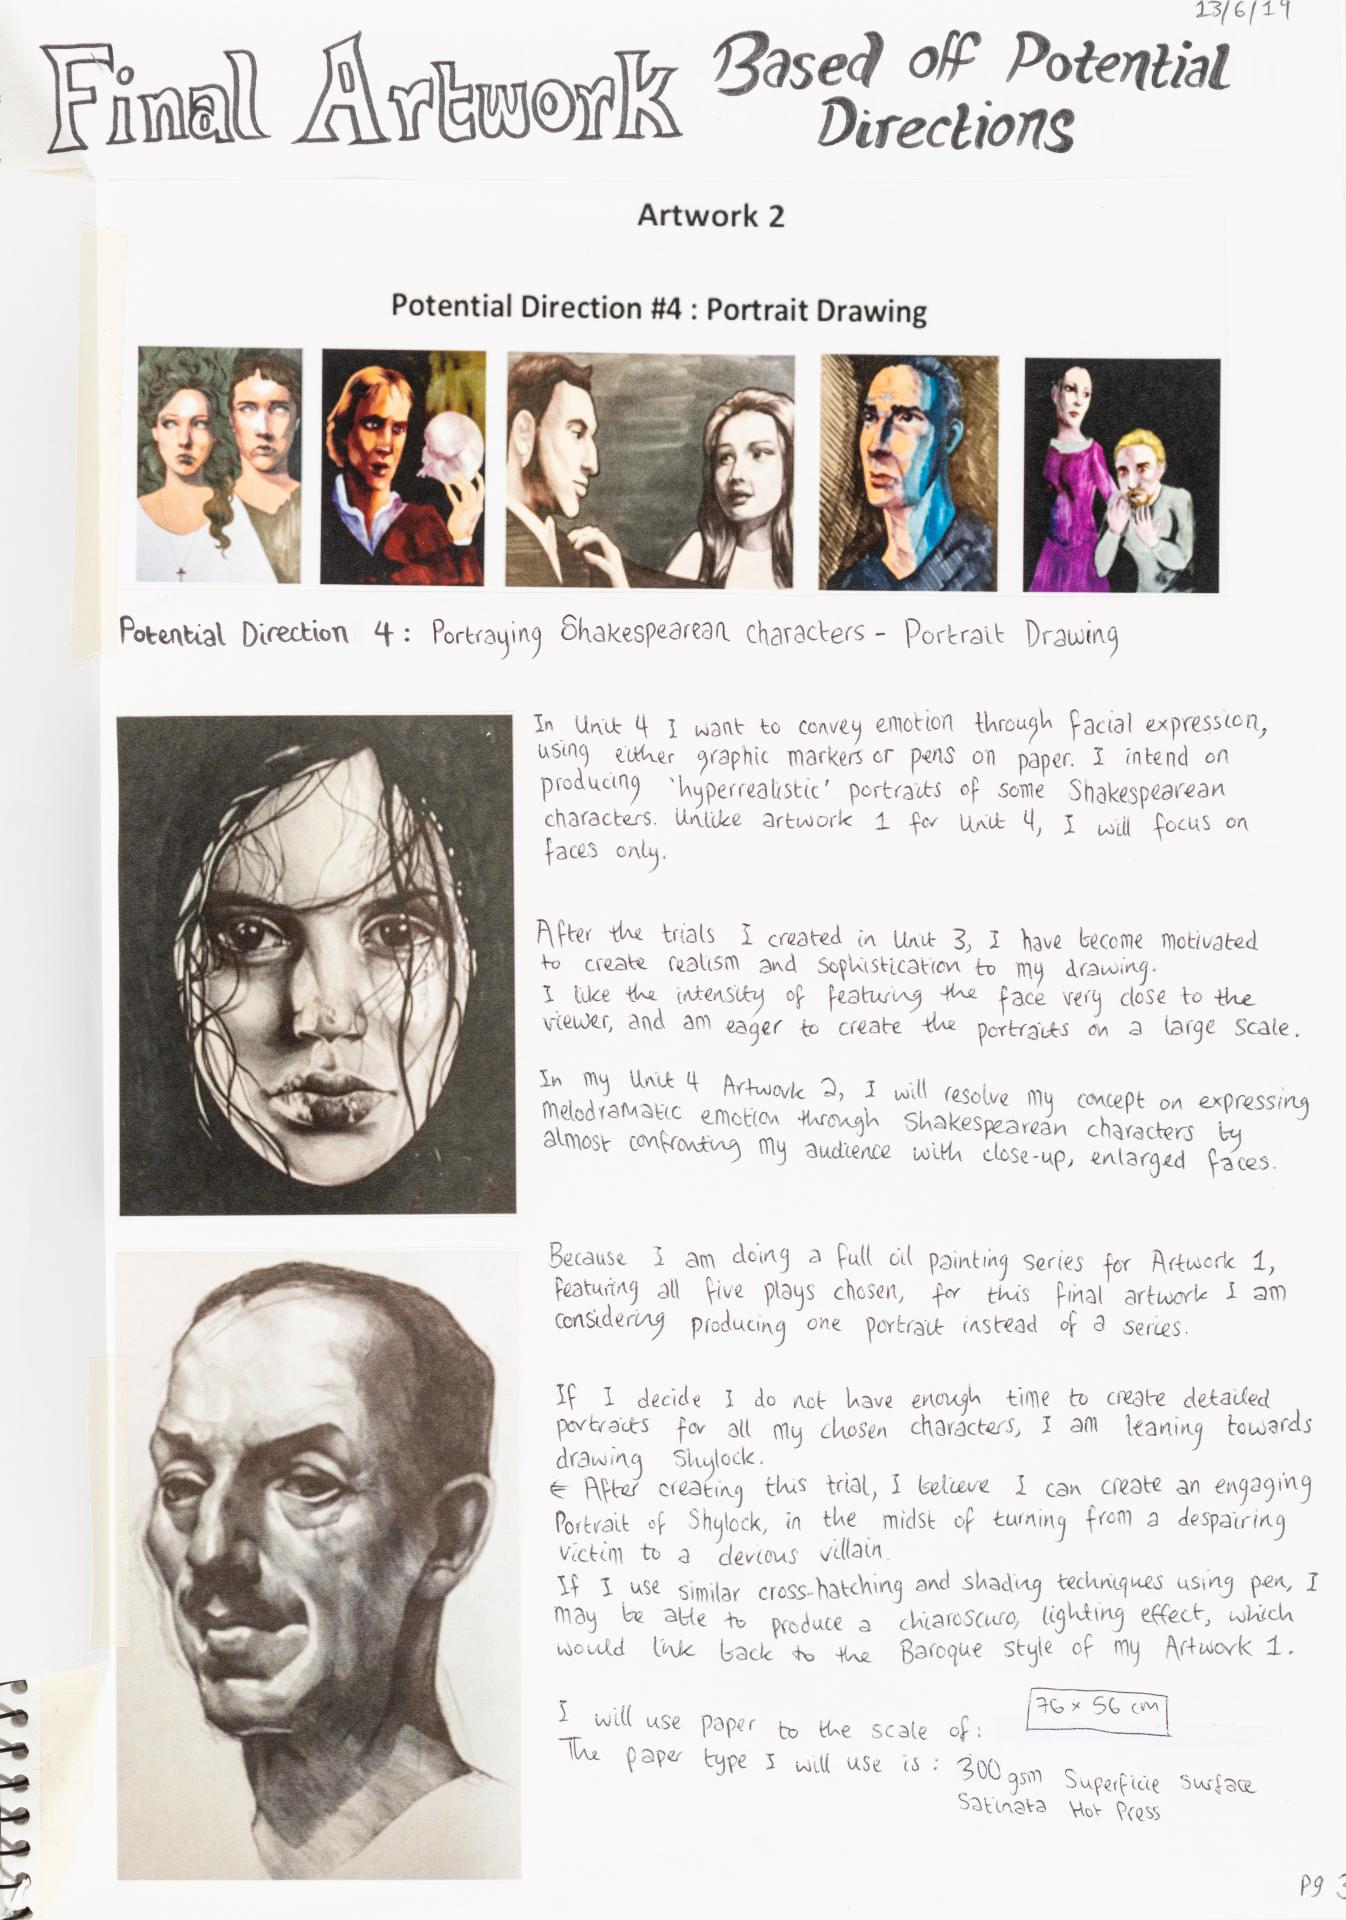 13/6/19
Final Artwork Based off Potential
Directions
Artwork 2
Potential Direction #4 : Portrait Drawing
Potential Direction 4 : Portraying Shakespearean characters - Portrait Drawing
In Unit 4 I want to convey emotion through facial expression,
using either graphic markers or pens on paper. I intend on
producing 'hyperrealistic' portraits of some Shakespearean
characters. Unlike artwork 1 for Unit 4, I will focus on
faces only.
After the trials I created in Unit 3, I have become motivated
to create realism and sophistication to my drawing.
I like the intensity of featuring the face very close to the
viewer, and am eager to create the portraits on a large scale.
In my Unit 4 Artwork 2, I will resolve my concept on expressing
melodramatic emotion through Shakespearean characters by
almost confronting my audience with close-up, enlarged faces.
Because I am doing a full oil painting series for Artwork 1,
featuring all five plays chosen, for this final artwork I am
considering producing one portrait instead of a series.
If I decide I do not have enough time to create detailed
portraits for all my chosen characters, I am leaning towards
drawing Shylock.
← After creating this trial, I believe I can create an engaging
Portrait of Shylock, in the midst of turning from a despairing
victim to a devious villain.
If I use similar cross-hatching and shading techniques using pen, I
may be able to produce a chiaroscuro, lighting effect, which
would link back to the Baroque style of my Artwork 1.
I will use paper to the scale of: 76 x 56 cm
The paper type I will use is : 300 gsm Superficie surface
Satinata Hot Press
Pg 3